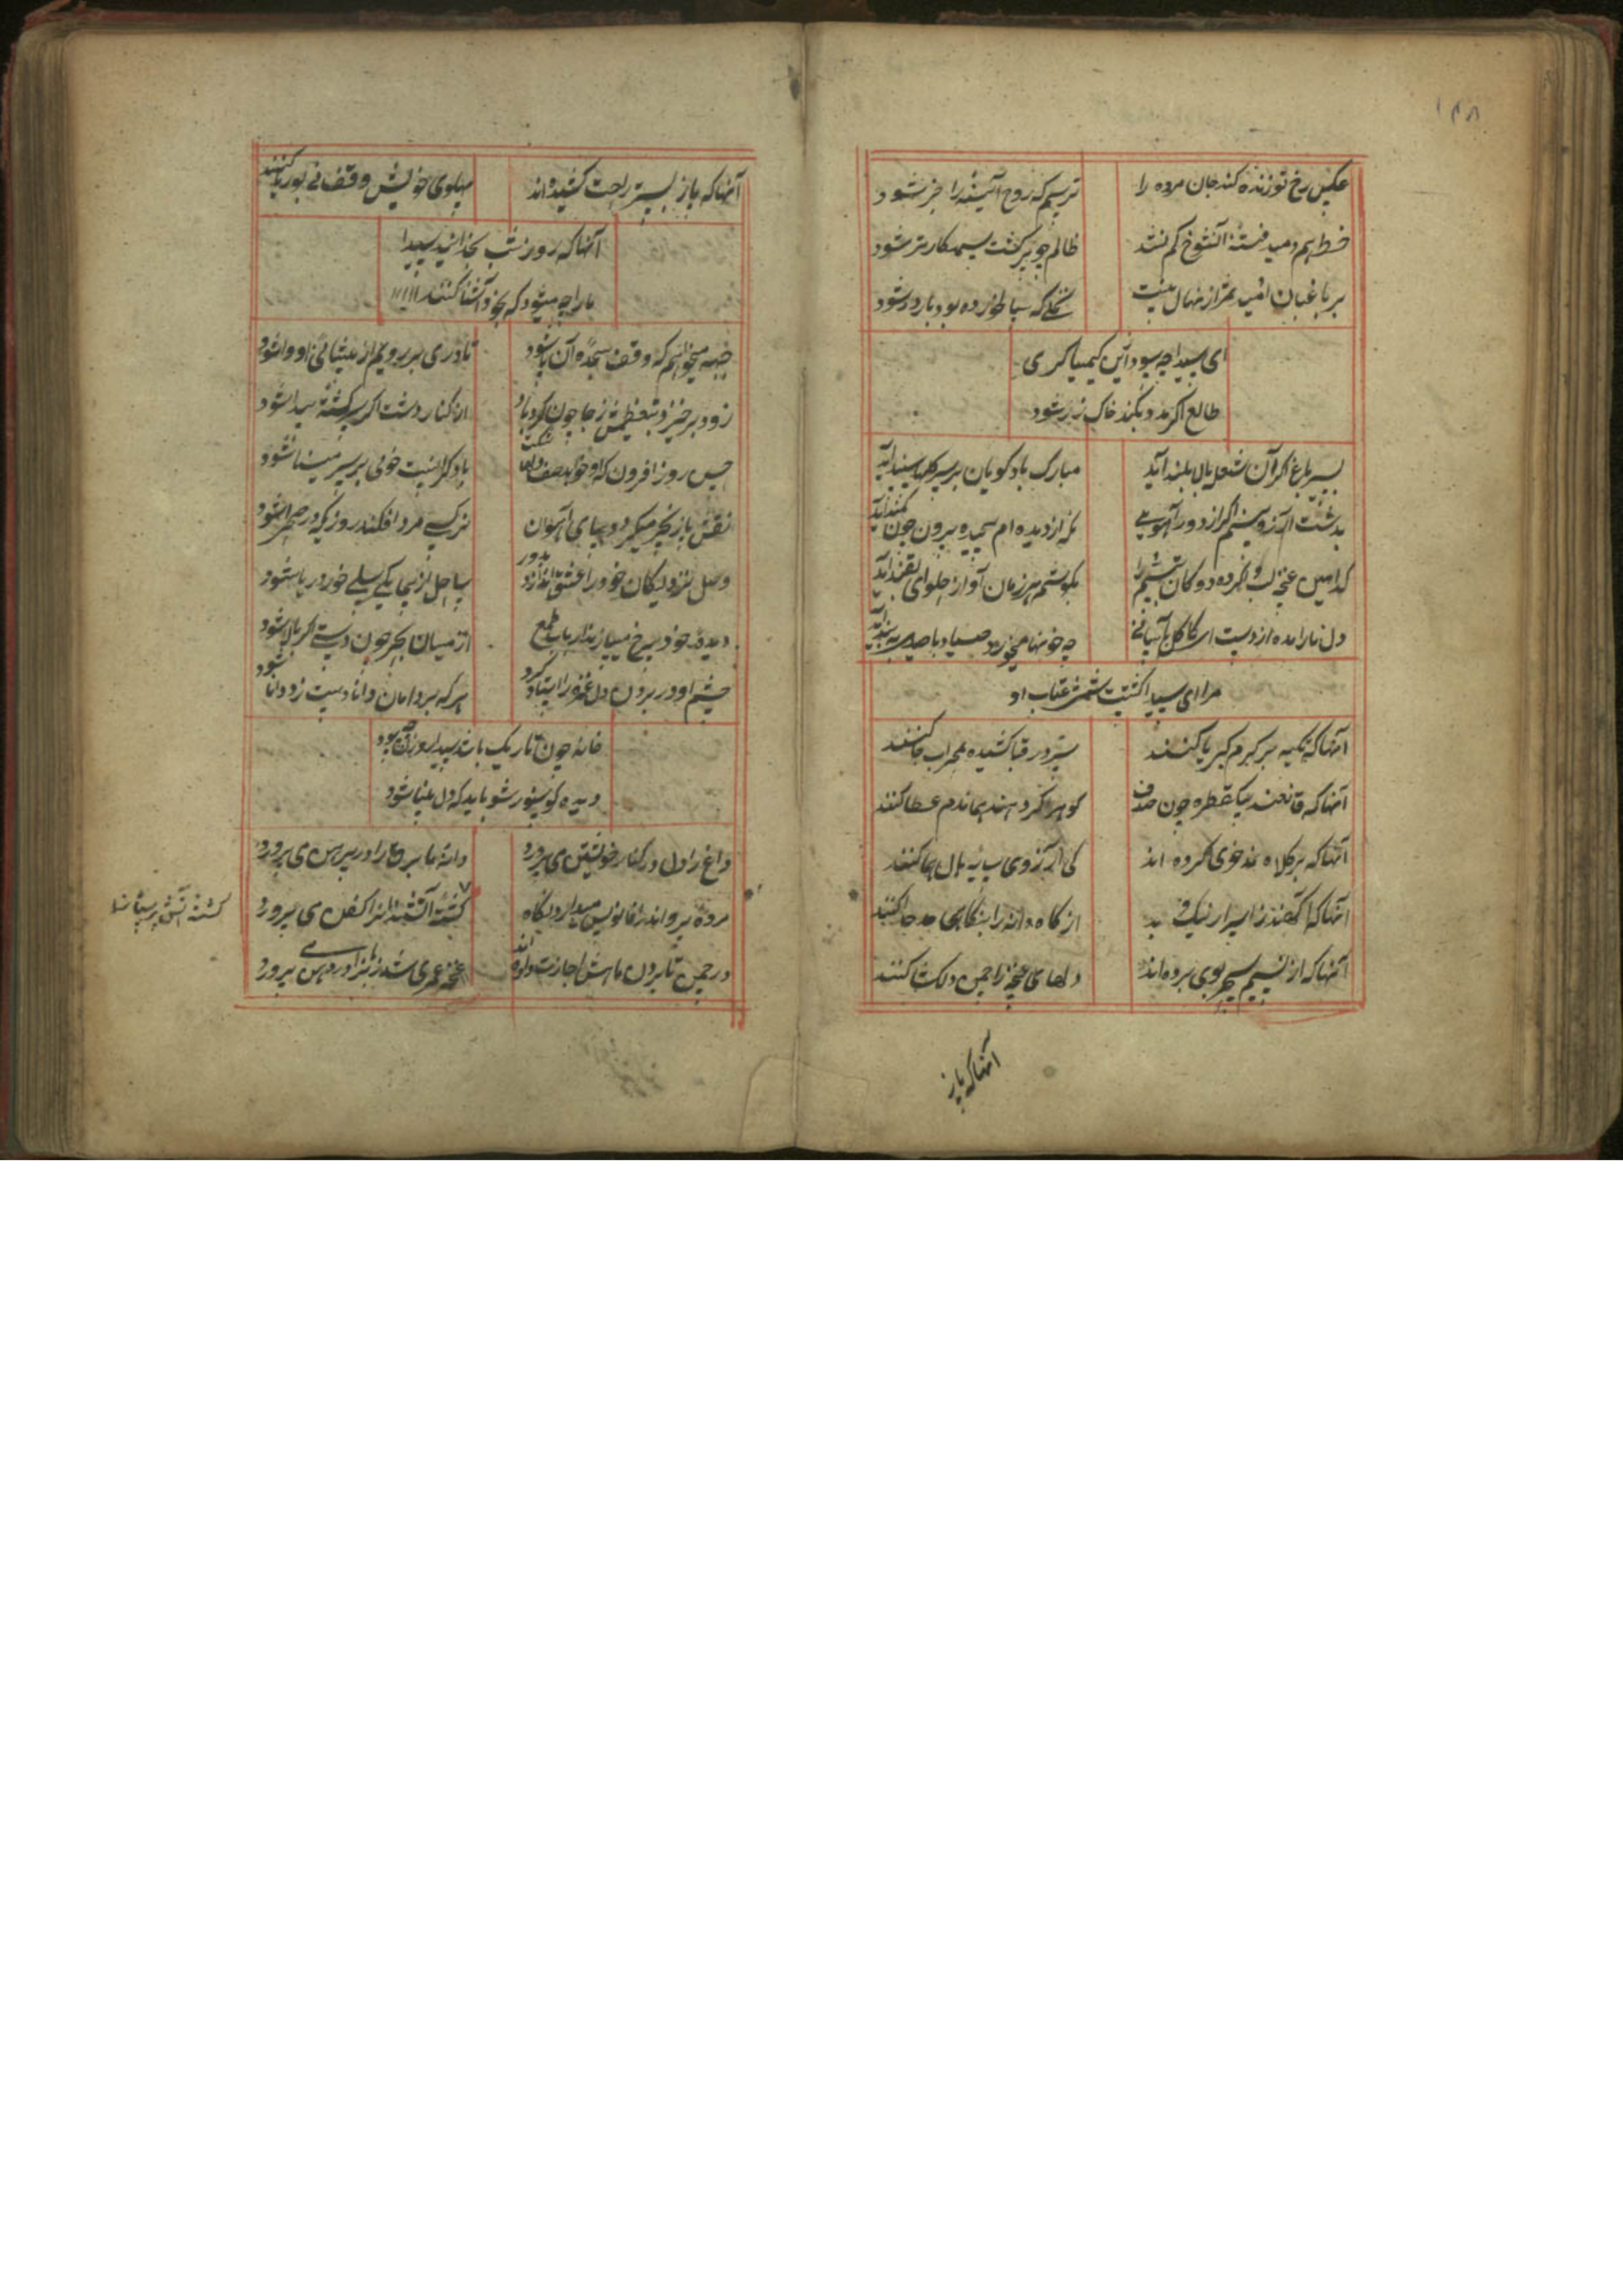 ۱۴۸
عکس رخ تو زنده کند جان مرده را
ترسم که روح آئینه را خبر شود
خط هم دمید فتنهٔ آنشوخ کم نشد
ظالم چو پیر گشت ستمکارتر شود
بر باغبان امید ثمر از نهال نیست
نخلی که سیلی خورده بود بارور شود
ای سیدا چه سود ازین کیمیاگری
طالع اگر مدد نکند خاک زر شود
بسیر باغ اگر آن شعله بالا بلند آید
مبارک باد گویان بر سر گلها سپند آید
بدشت آرزو بینم اگر از دور آهویی
نگه از دیده ام پیچیده بیرون چون کمند آید
کدامین غنچه لب وا کرده دوکان تبسم را
بگوشم هر زمان آواز حلوای بقند آید
دل ما را مده از دست ای کاکل بآسانی
چه خونها میخورد صیاد با صیدی به بند آید
مرا ای سیدا کشتست خشم و عتاب او
آنها که تکیه بر کرم کبریا کنند
سر در قبا کشیده بمحراب جا کنند
آنها که قانعند بیک قطره چون صدف
گوهر اگر دهند همان دم عطا کنند
آنها که بر کلاه نمد خوی کرده اند
کی آرزوی سایه بال هما کنند
آنها که آگهند ز اسرار نیک و بد
از کاه دانه را بنگاهی جدا کنند
آنها که از نسیم سحر بوی برده اند
دلهای غنچه را چمن دلکشا کنند
آنها که پا ز
آنها که پا ز بستر راحت کشیده اند
پهلوی خویش وقف نی بوریا کنند
آنها که روز و شب بخدایند سیدا
ما را چه میشود که بخود آشنا کنند
جبهه میخواهم که وقف سجدهٔ آن پا شود
تا دری بر رویم از پیشانی او وا شود
زود برخیزد بتعظیمش ز جا چون گردباد
از کنار دشت اگر سرگشته پیدا شود
حسن روز افزون که او خواهد صف دلها شکست
باده گلرنگ خونی بر سر مینا شود
نقش پا زنجیر میگردد بپای آهوان
نرگس مرد افکند روزیکه در صحرا شود
وصل نزدیکان خود را عشق اندازد بدور
ساحل از بیباکی سیلی خور دریا شود
دیده خود سرخ میسازند ارباب طمع
از میان بحر چون دستی اگر بالا شود
چشم او در بردن دل غمزه را استاد کرد
هر که بر دامان دانا دست زد دانا شود
خانه چون تاریک باشد سیدا روزن چه سود
دیده کو بینور شو باید که دل بینا شود
داغ را دل در کنار خویشتن می پرورد
دانهٔ ما برق را در پیرهن می پرورد
مرده پروانه را فانوس میدارد نگاه
کشتهٔ آتش را کفن می پرورد
در چمن تا بردن نامش اجازت داده اند
غنچه عمری شد زبانرا در دهن می پرورد
کشته آتش پرستانرا